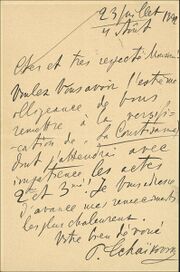 23 Juillet 1891
4 Août
Cher et très respecté Monsieur!
Voulez Vous avoir l'extrême
obligeance de Vous
remettre à la versifi-
cation de la
Dont j'attendrai avec
impatience les actes
2d et 3me. Je Vous adresse
d'avance mes remerciements
les plus chaleureux.
Votre bien dévoué
P. Tschaikovsky